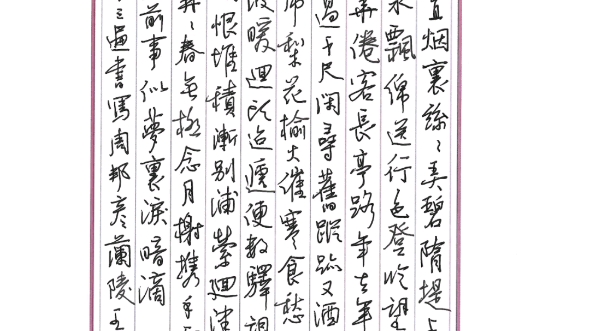 直烟裏絲〻弄碧隋堤上
水飄綿送行色登临望
華倦客長亭路年去年
過千尺闲尋舊蹤跡又酒
席梨花榆火催寒食愁
波暖迴头迢遞便数驛
恨堆積漸别浦縈迴津
〻春無極念月榭携手
前事似夢裏淚暗滴
三遍書寫周邦彦蘭陵王